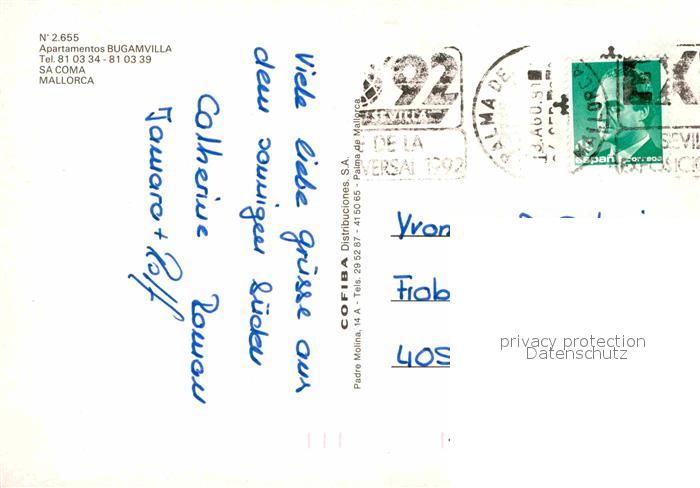 N° 2.655
Apartamentos BUGAMVILLA
Tel. 81 03 34 - 81 03 39
SA COMA
MALLORCA
Viele liebe Grüsse aus
dem sonnigen Süden
Catherine Roman
Tamara + Rolf
COFIBA Distribuciones, S.A.
Padre Molina, 14 A - Tels. 29 52 87 - 41 50 65 - Palma de Mallorca
92
SEVILLA
DE LA
VERSAL 1992
PALMA DE
MALLORCA
España correos
SEVIL
Yvon
Frob
405
privacy protection
Datenschutz